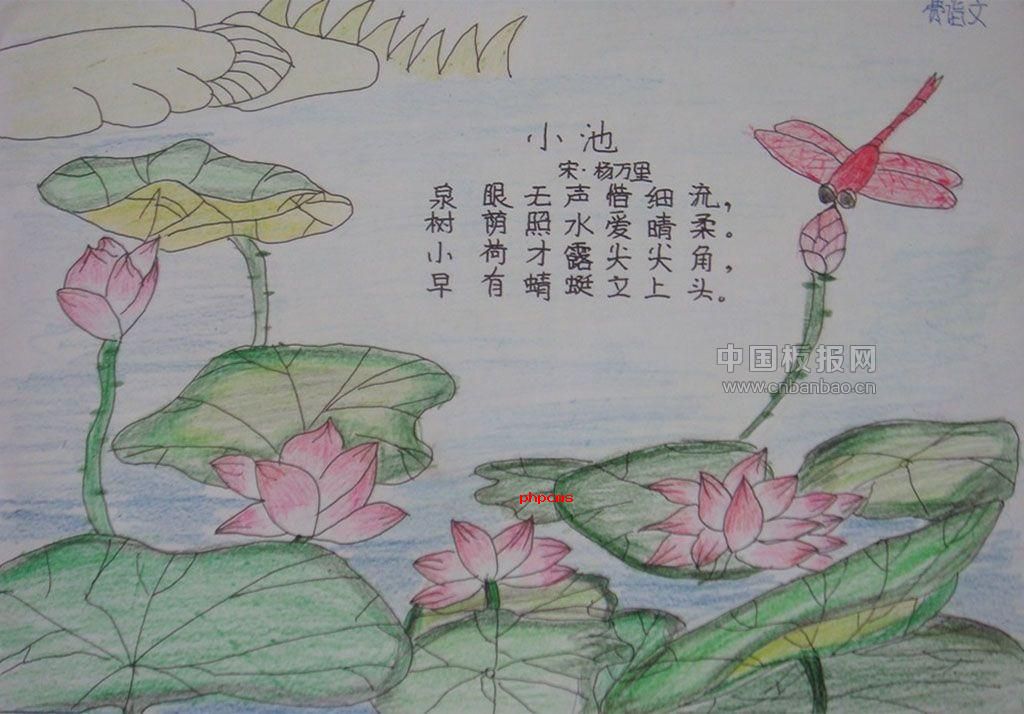 小池
宋·杨万里
泉眼无声惜细流，
树荫照水爱晴柔。
小荷才露尖尖角，
早有蜻蜓立上头。
中国板报网
www.cnbanbao.cn
phpcms